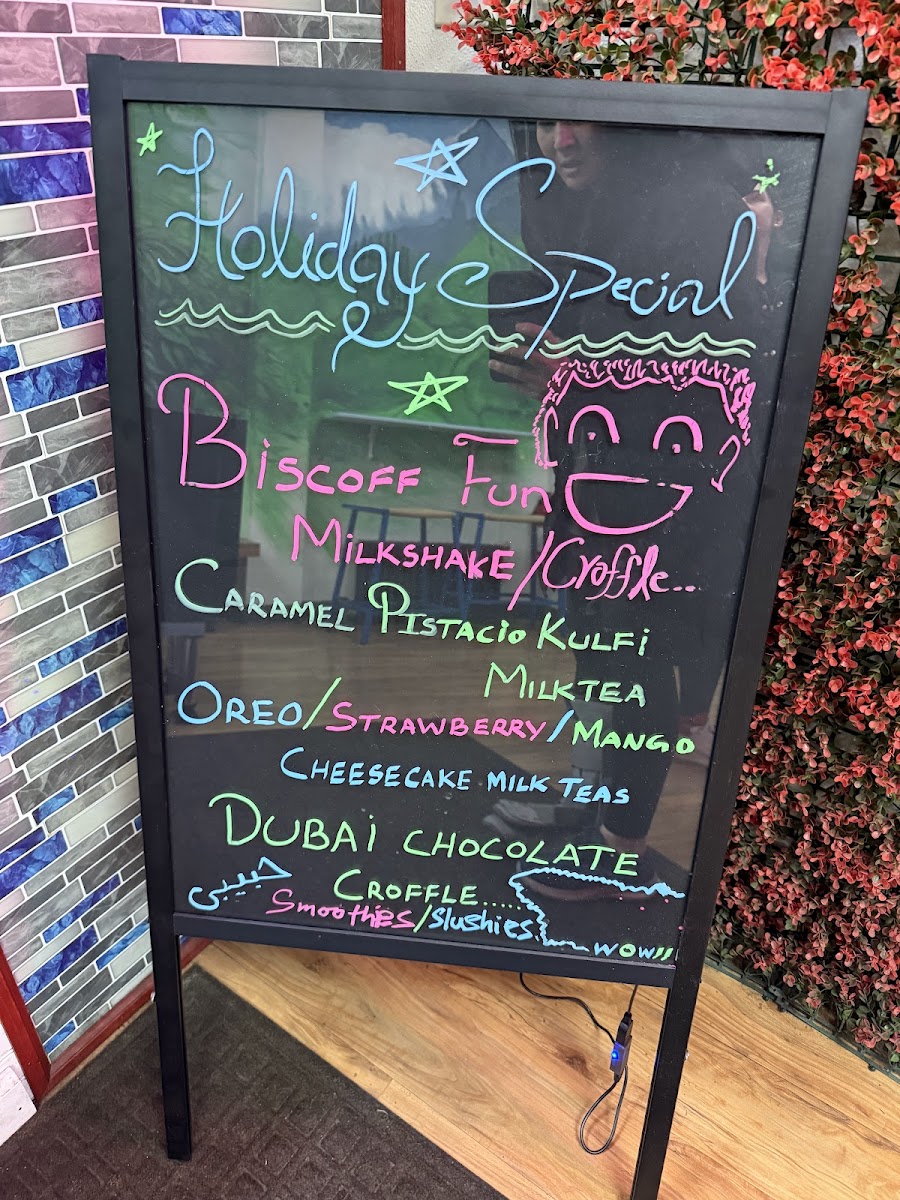 Holiday Special
Biscoff Fun
Milkshake/Croffle..
Caramel Pistacio Kulfi
Milktea
Oreo/Strawberry/Mango
Cheesecake Milk Teas
Dubai Chocolate
حبيبي
Croffle.....
Smoothies/Slushies
wow!!